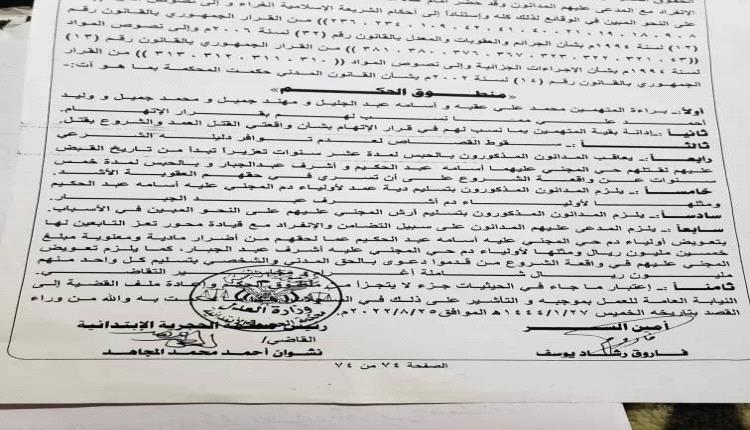 الانفراد مع المدعى عليهم المدانون وقد حضر امام
على النحو المبين في الوقائع لذلك كله وإستناداً إلى أحكام الشريعة الإسلامية الغراء و إلى نصوص
)) من القرار الجمهوري بالقانون رقم
(١٢) لسنة ١٩٩٤م بشأن الجرائم والعقوبات والمعدل بالقانون رقم (٣٢) لسنة ٢٠٠٦م وإلى نصوص المواد
)) من القرار الجمهوري بالقانون رقم (١٣)
لسنة ١٩٩٤م بشأن الإجراءات الجزائية وإلى نصوص المواد (( ٣١٠ ، ٣١١ ، ٣١٢ ، ٣١٣ )) من القرار
الجمهوري بالقانون رقم (١٤) لسنة ٢٠٠٢م بشأن القانون المدني حكمت المحكمة بما هو آت:-
«منطوق الحكم»
أولاً:ـ براءة المتهمين محمد علي عقبه و أسامه عبد الجليل و مهند جميل و محمد جميل و وليد
أحمد علي مما نسب لهم بقرار الإتهام.
ثانياً:ـ إدانة بقية المتهمين بما نسب لهم في قرار الإتهام بشأن واقعتي القتل العمد والشروع بقتل.
ثالثاً:ـ سقوط القصاص لعدم توافر دليله الشرعي
رابعاً:ـ يعاقب المدانون المذكورون بالحبس لمدة عشر سنوات تعزيراً تبدأ من تاريخ القبض
عليهم لقتلهم حي المجني عليهما أسامه عبد الحكيم و أشرف عبدالجبار و بالحبس لمدة خمس
سنوات عن واقعة الشروع على أن تسري في حقهم العقوبة الأشد.
خامساً:ـ يلزم المدانون المذكورون بتسليم دية عمد لأولياء دم المجني عليه أسامه عبد الحكيم
ومثلها لأولياء دم أشرف عبد الجبار.
سادساً:ـ يلزم المدانون المذكورون بتسليم أرش المجني عليهم على النحو المبين في الأسباب.
سابعاً:ـ يلزم المدعى عليهم المدانون على سبيل التضامن والإنفراد مع قيادة محور تعز التابعين لها
بتعويض أولياء دم حي المجني عليه أسامه عبد الحكيم عما لحقهم من أضرار مادية ومعنوية مبلغ
خمسين مليون ريال ومثلها لأولياء دم حي المجني عليه أشرف عبد الجبار، كما يلزم بتعويض
المجني عليهم في واقعة الشروع من قدموا دعوى بالحق المدني والشخصي بتسليم كل واحد منهم
مليون ريال شاملة التقاضي.
ثامناً:ـ إعتبار ما جاء في الحيثيات جزء لا يتجزأ من منطوق الحكم وإعادة ملف القضية إلى
النيابة العامة للعمل بموجبه و التأشير على ذلك في به والله من وراء
القصد بتاريخه الخميس ١٤٤٤/١/٢٧هـ الموافق ٢٠٢٢/٨/٢٥م.
وزارة العدل
أمين السر
رئيس محكمة الحجرية الإبتدائية
القاضي/
فاروق رشاد يوسف
نشوان أحمد محمد المجاهد
الصفحة ٧٤ من ٧٤